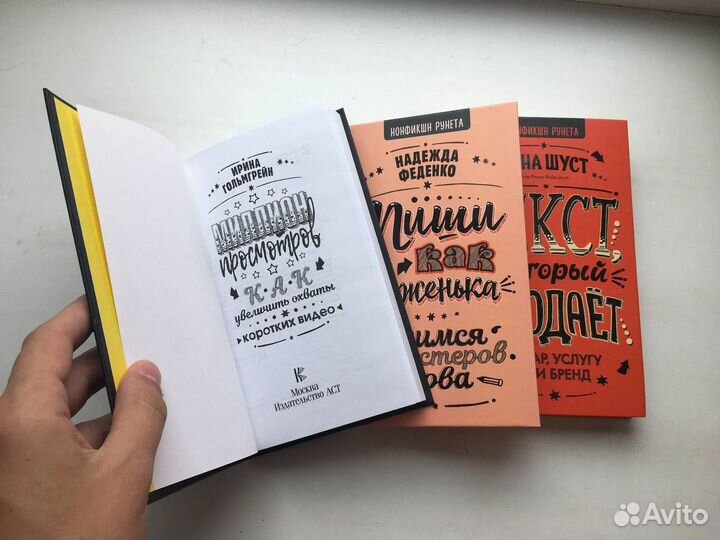 ИРИНА
ГОЛЬМГРЕЙН
МИЛЛИОН
просмотров
К·А·К
увеличить охваты
КОРОТКИХ ВИДЕО
Москва
Издательство АСТ
НОНФИКШН РУНЕТА
НАДЕЖДА
ФЕДЕНКО
Пиши
как
женька
имся
стеров
ова
НОНФИКШН РУНЕТА
НА ШУСТ
КСТ,
торый
ОДАЁТ
АР, УСЛУГУ
И БРЕНД
Avito